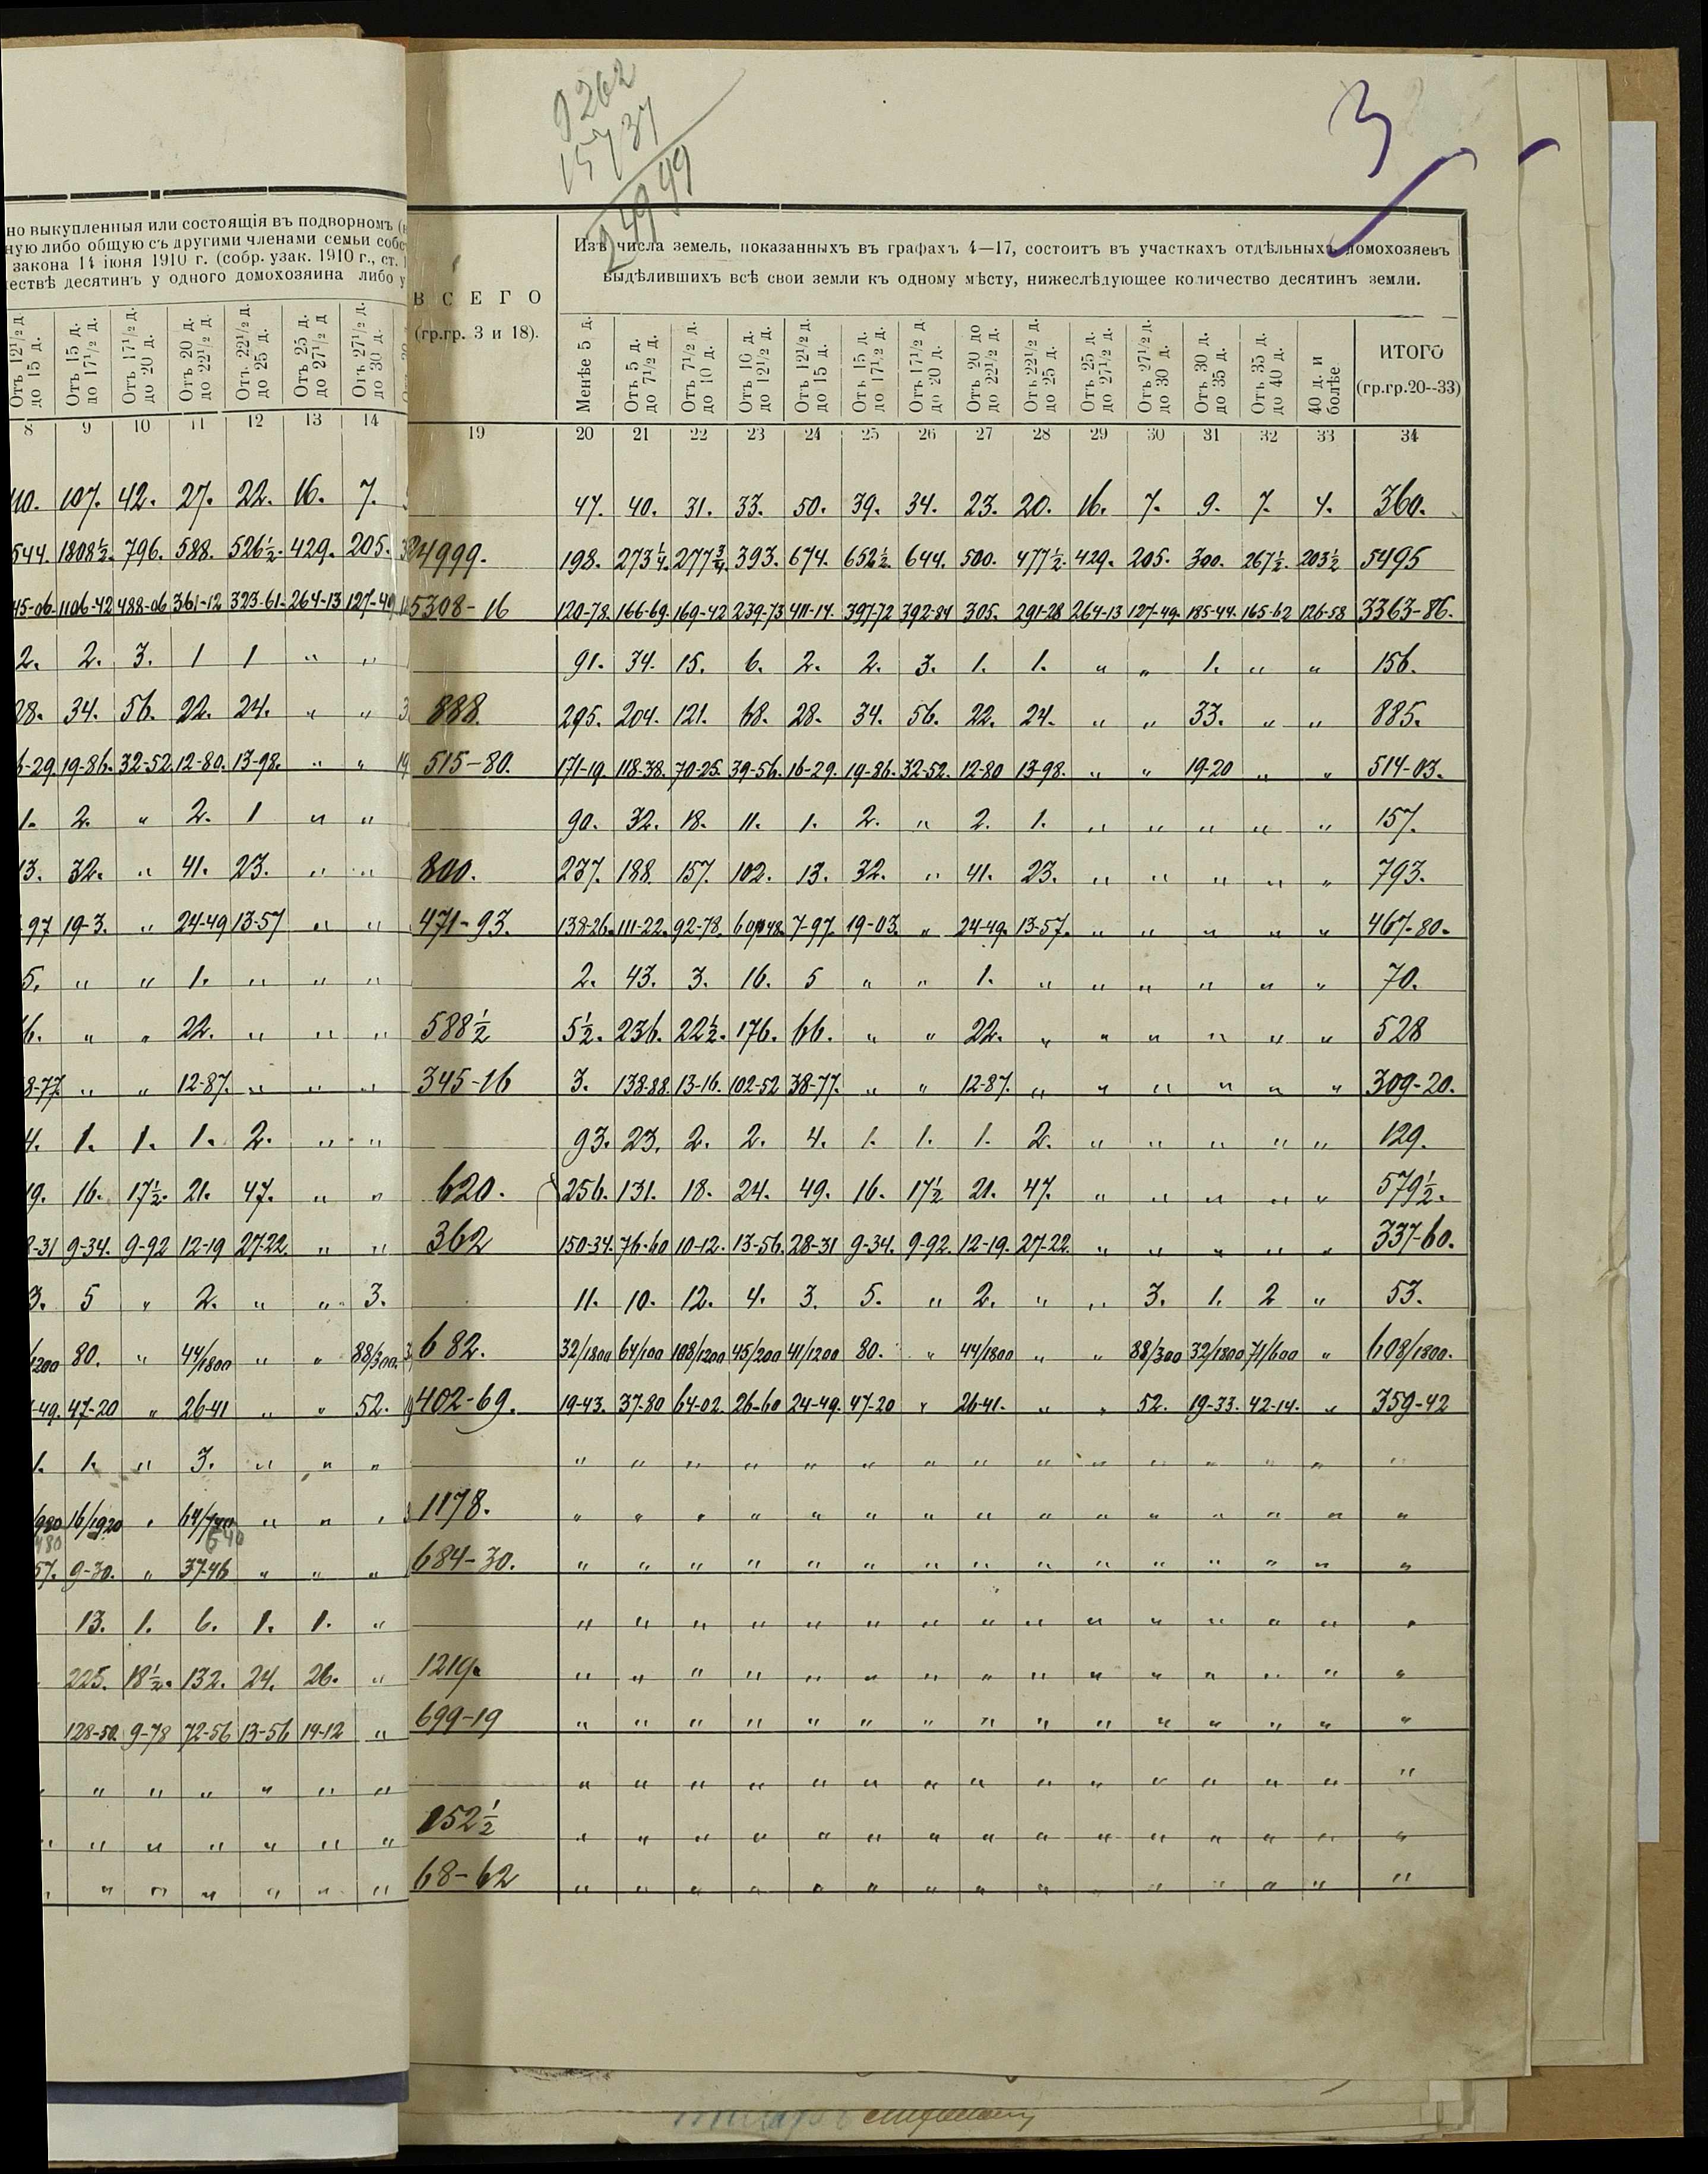 9262
15737
24999
3
но выкупленныя или состоящія въ подворномъ
ную либо общую съ другими членами семьи собс
закона 14 іюня 1910 г. (собр. узак. 1910 г., ст.
ествѣ десятинъ у одного домохозяина либо у
ВСЕГО
(гр.гр. 3 и 18).
Изъ числа земель, показанныхъ въ графахъ 4—17, состоитъ въ участкахъ отдѣльныхъ домохозяевъ
выдѣлившихъ всѣ свои земли къ одному мѣсту, нижеслѣдующее количество десятинъ земли.
Отъ 12½ д. до 15 д. Отъ 15 д. до 17½ д. Отъ 17½ д. до 20 д. Отъ 20 д. до 22½ д. Отъ 22½ д. до 25 д. Отъ 25 д. до 27½ д. Отъ 27½ д. до 30 д.
Менѣе 5 д. Отъ 5 д. до 7½ д. Отъ 7½ д. до 10 д. Отъ 10 д. до 12½ д. Отъ 12½ д. до 15 д. Отъ 15 д. до 17½ д. Отъ 17½ д. до 20 д. Отъ 20 до 22½ д. Отъ 22½ д. до 25 д. Отъ 25 д. до 27½ д. Отъ 27½ д. до 30 д. Отъ 30 д. до 35 д. Отъ 35 д. до 40 д. 40 д. и болѣе. ИТОГО (гр.гр.20--33)
8 9 10 11 12 13 14 19 20 21 22 23 24 25 26 27 28 29 30 31 32 33 34
10. 107. 42. 27. 22. 16. 7. 47. 40. 31. 33. 50. 39. 34. 23. 20. 16. 7. 9. 7. 4. 360.
544. 1808½. 796. 588. 526½. 429. 205. 4999. 198. 273¼. 277¾. 393. 674. 652½. 644. 500. 477½. 429. 205. 300. 267½. 203½ 5495
45-06 1106-42 488-06 361-12 323-61. 264-13 127-49 5308-16 120-78. 166-69. 169-42 239-73 411-14. 397-72 392-84 305. 291-28 264-13 127-49. 185-44. 165-62 126-58 3363-86.
2. 2. 3. 1 1 " " 91. 34. 15. 6. 2. 2. 3. 1. 1. " " 1. " " 156.
28. 34. 56. 22. 24. " " 888. 295. 204. 121. 68. 28. 34. 56. 22. 24. " " 33. " " 885.
6-29. 19-86. 32-52. 12-80. 13-98. " " 515-80. 171-19. 118-38. 70-25. 39-56. 16-29. 19-86. 32-52. 12-80 13-98. " " 19-20 " " 514-03.
1. 2. " 2. 1 " " 90. 32. 18. 11. 1. 2. " 2. 1. " " " " " 157.
13. 32. " 41. 23. " " 800. 237. 188. 157. 102. 13. 32. " 41. 23. " " " " " 793.
-97 19-3. " 24-49 13-57 " " 471-93. 138-26. 111-22. 92-78. 60-48. 7-97. 19-03. " 24-49. 13-57. " " " " " 467-80.
5. " " 1. " " " 2. 43. 3. 16. 5 " " 1. " " " " " " 70.
6. " " 22. " " " 588½ 5½. 236. 22½. 176. 66. " " 22. " " " " " " 528
8-77. " " 12-87. " " " 345-16 3. 138-88. 13-16. 102-52 38-77. " " 12-87. " " " " " " 309-20.
4. 1. 1. 1. 2. " " 93. 23. 2. 2. 4. 1. 1. 1. 2. " " " " " 129.
9. 16. 17½. 21. 47. " " 620. 256. 131. 18. 24. 49. 16. 17½ 21. 47. " " " " " 579½.
8-31 9-34. 9-92 12-19 27-22. " " 362 150-34. 76-60 10-12. 13-56. 28-31 9-34. 9-92. 12-19. 27-22. " " " " " 337-60.
3. 5 " 2. " " 3. 11. 10. 12. 4. 3. 5. " 2. " " 3. 1. 2 " 53.
1200 80. " 44/1800 " " 88/300. 682. 32/1800 64/100 108/1200 45/200 41/1200 80. " 44/1800 " " 88/300 32/1800 71/600 " 608/1800.
-49. 47-20 " 26-41 " " 52. 402-69. 19-43. 37-80 64-02. 26-60 24-49. 47-20 " 26-41. " " 52. 19-33. 42-14. " 359-42
1. 1. " 3. " " " " " " " " " " " " " " " " " "
980 16/1920 " 64/ " " " 1178. " " " " " " " " " " " " " " "
480 640
57. 9-30. " 37-46 " " " 684-30. " " " " " " " " " " " " " " "
13. 1. 6. 1. 1. " " " " " " " " " " " " " " " "
225. 18½. 132. 24. 26. " 1219. " " " " " " " " " " " " " " "
128-50. 9-78 72-56 13-56 14-12 " 699-19 " " " " " " " " " " " " " " "
" " " " " " " " " " " " " " " " " " " " " "
" " " " " " " 152½ " " " " " " " " " " " " " " "
" " " " " " " 68-62 " " " " " " " " " " " " " " "